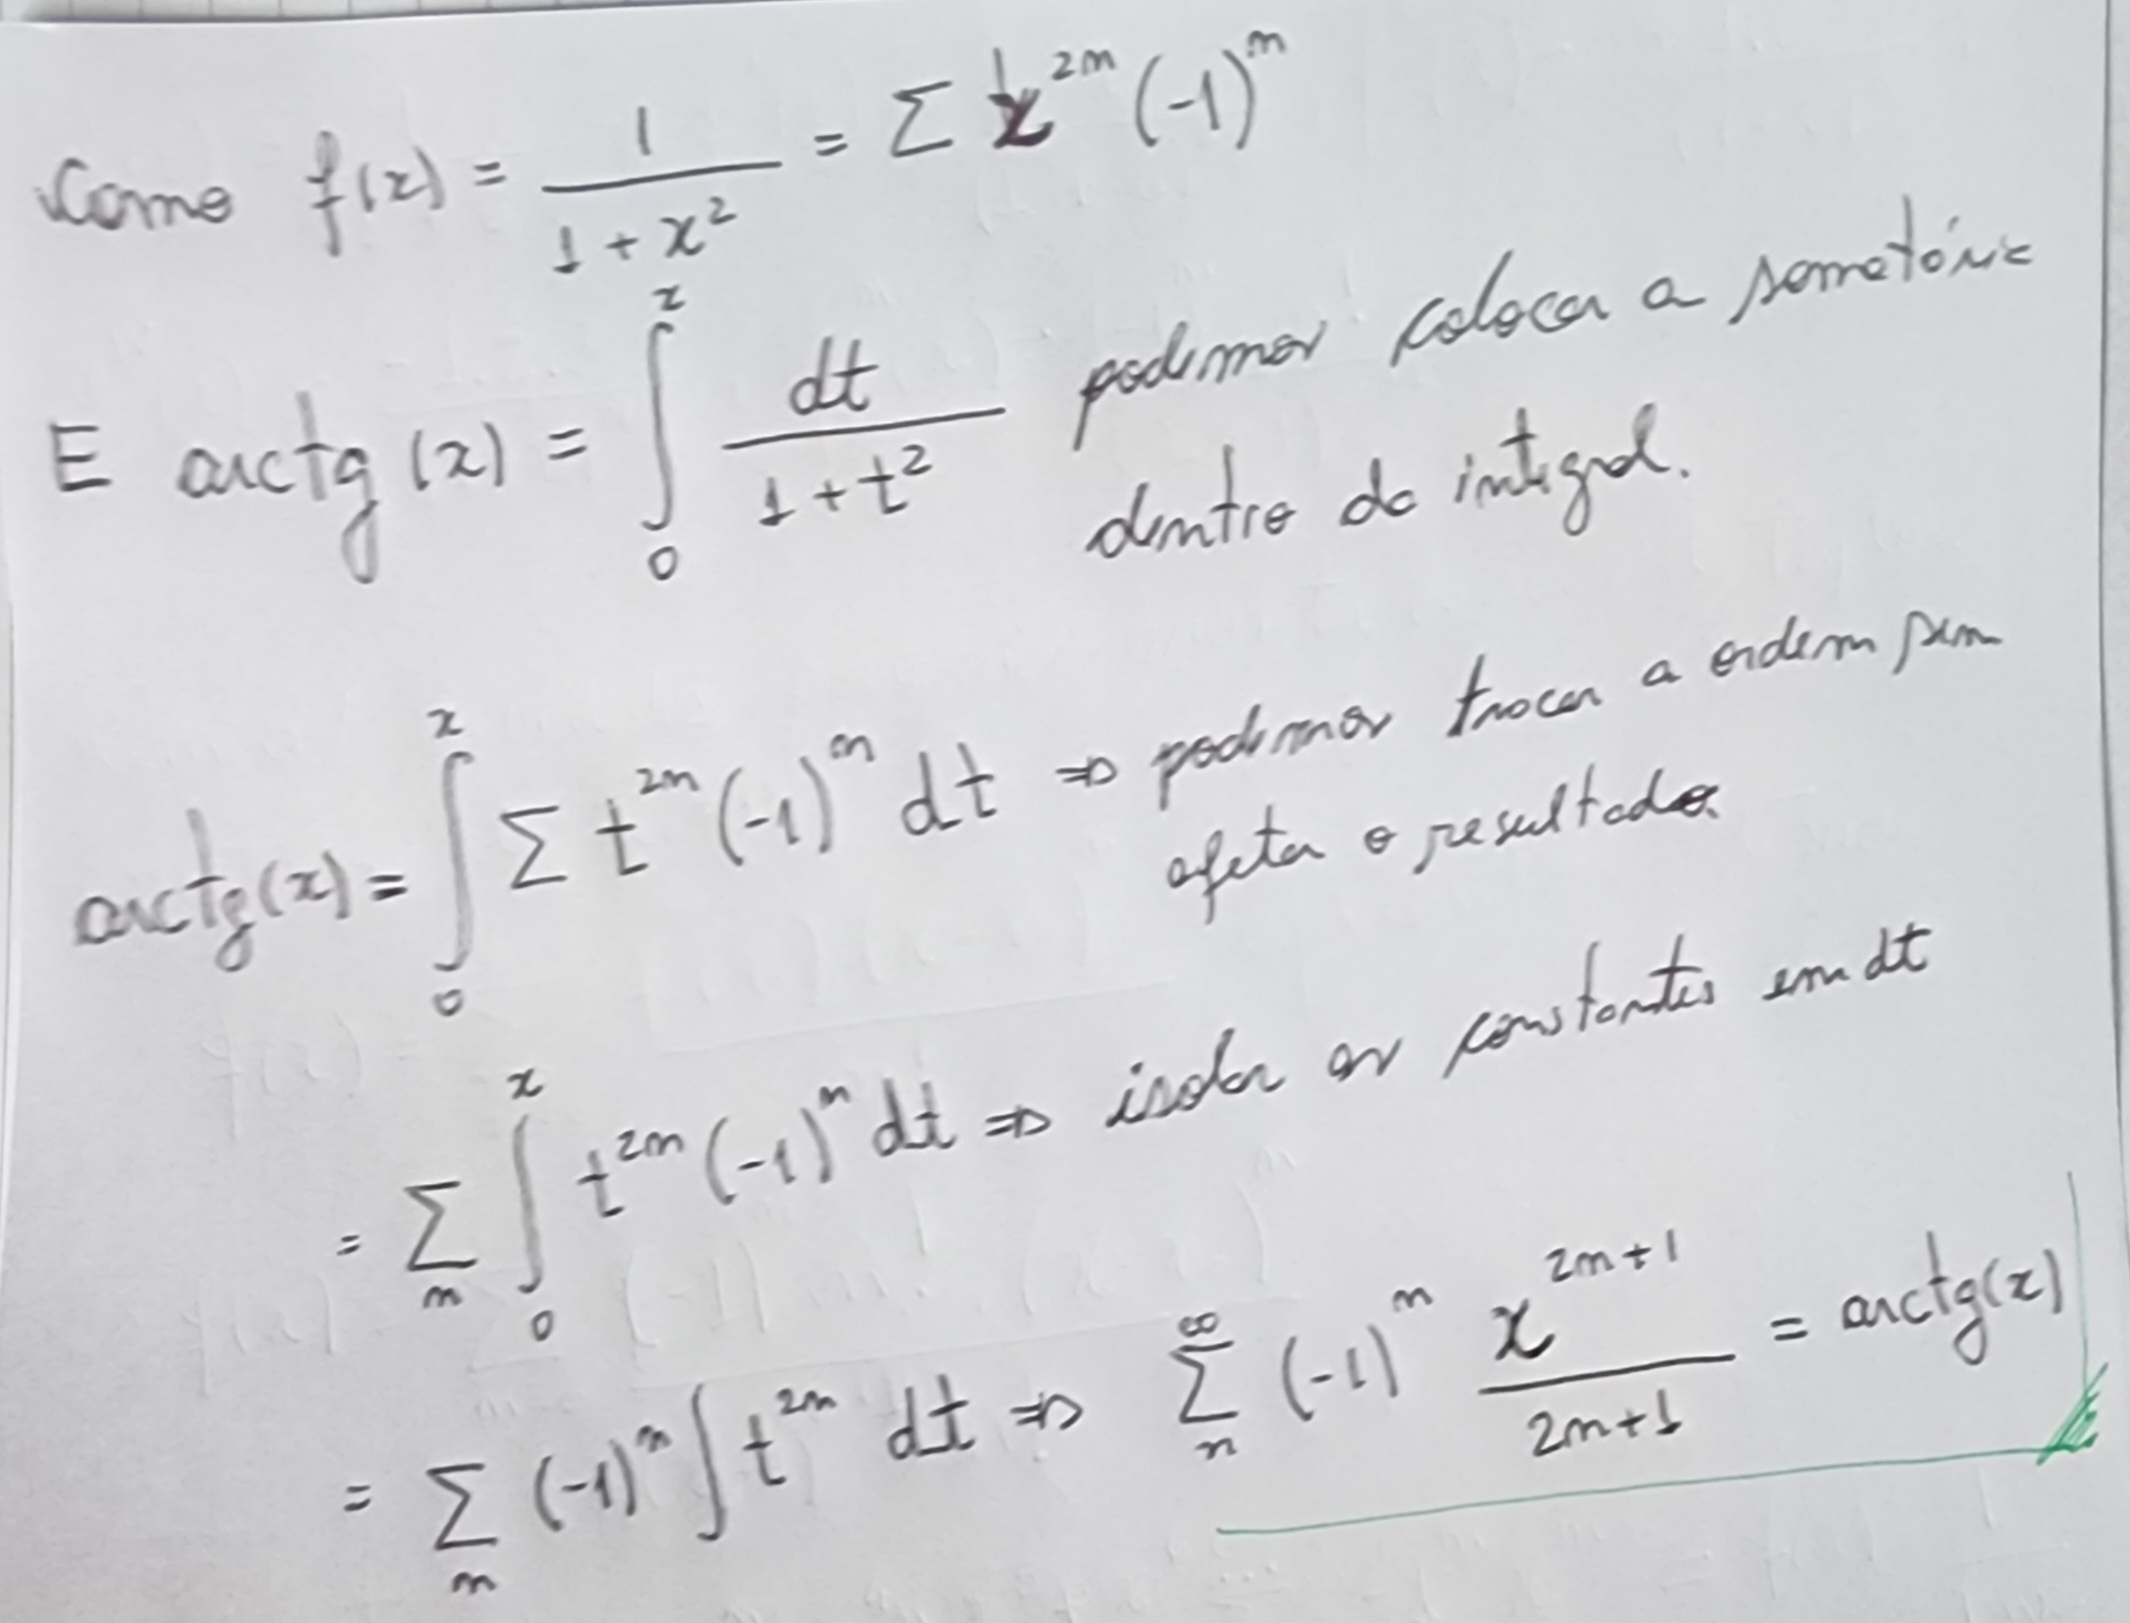 Como f(x) = 1/(1+x²) = Σ x^{2n} (-1)^n
E arctg(x) = ∫_0^x dt/(1+t²) podemos colocar a somatória
dentro da integral.
arctg(x) = ∫_0^x Σ t^{2n} (-1)^n dt ⇒ podemos trocar a ordem sem
afetar o resultado.
= Σ_n ∫_0^x t^{2n} (-1)^n dt ⇒ isolar as constantes em dt
= Σ_n (-1)^n ∫ t^{2n} dt ⇒ Σ_n^∞ (-1)^n x^{2n+1}/(2n+1) = arctg(x)